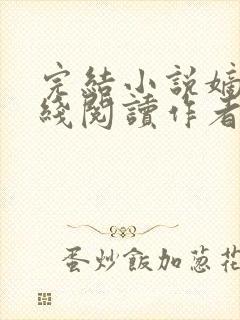 完結小説嫡
綫閱讀作者
蛋炒飯加蔥花